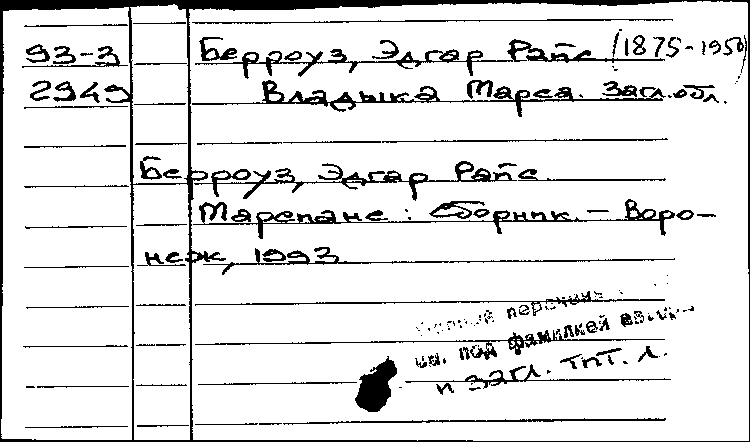 93-3 Берроуз, Эдгар Райс (1875-1950)
2949 Владыка Марса. Загл. обл.
Берроуз, Эдгар Райс
Марсиане : Сборник. — Воро-
неж, 1993
перечень
см. под фамилией
и загл. тит. л.